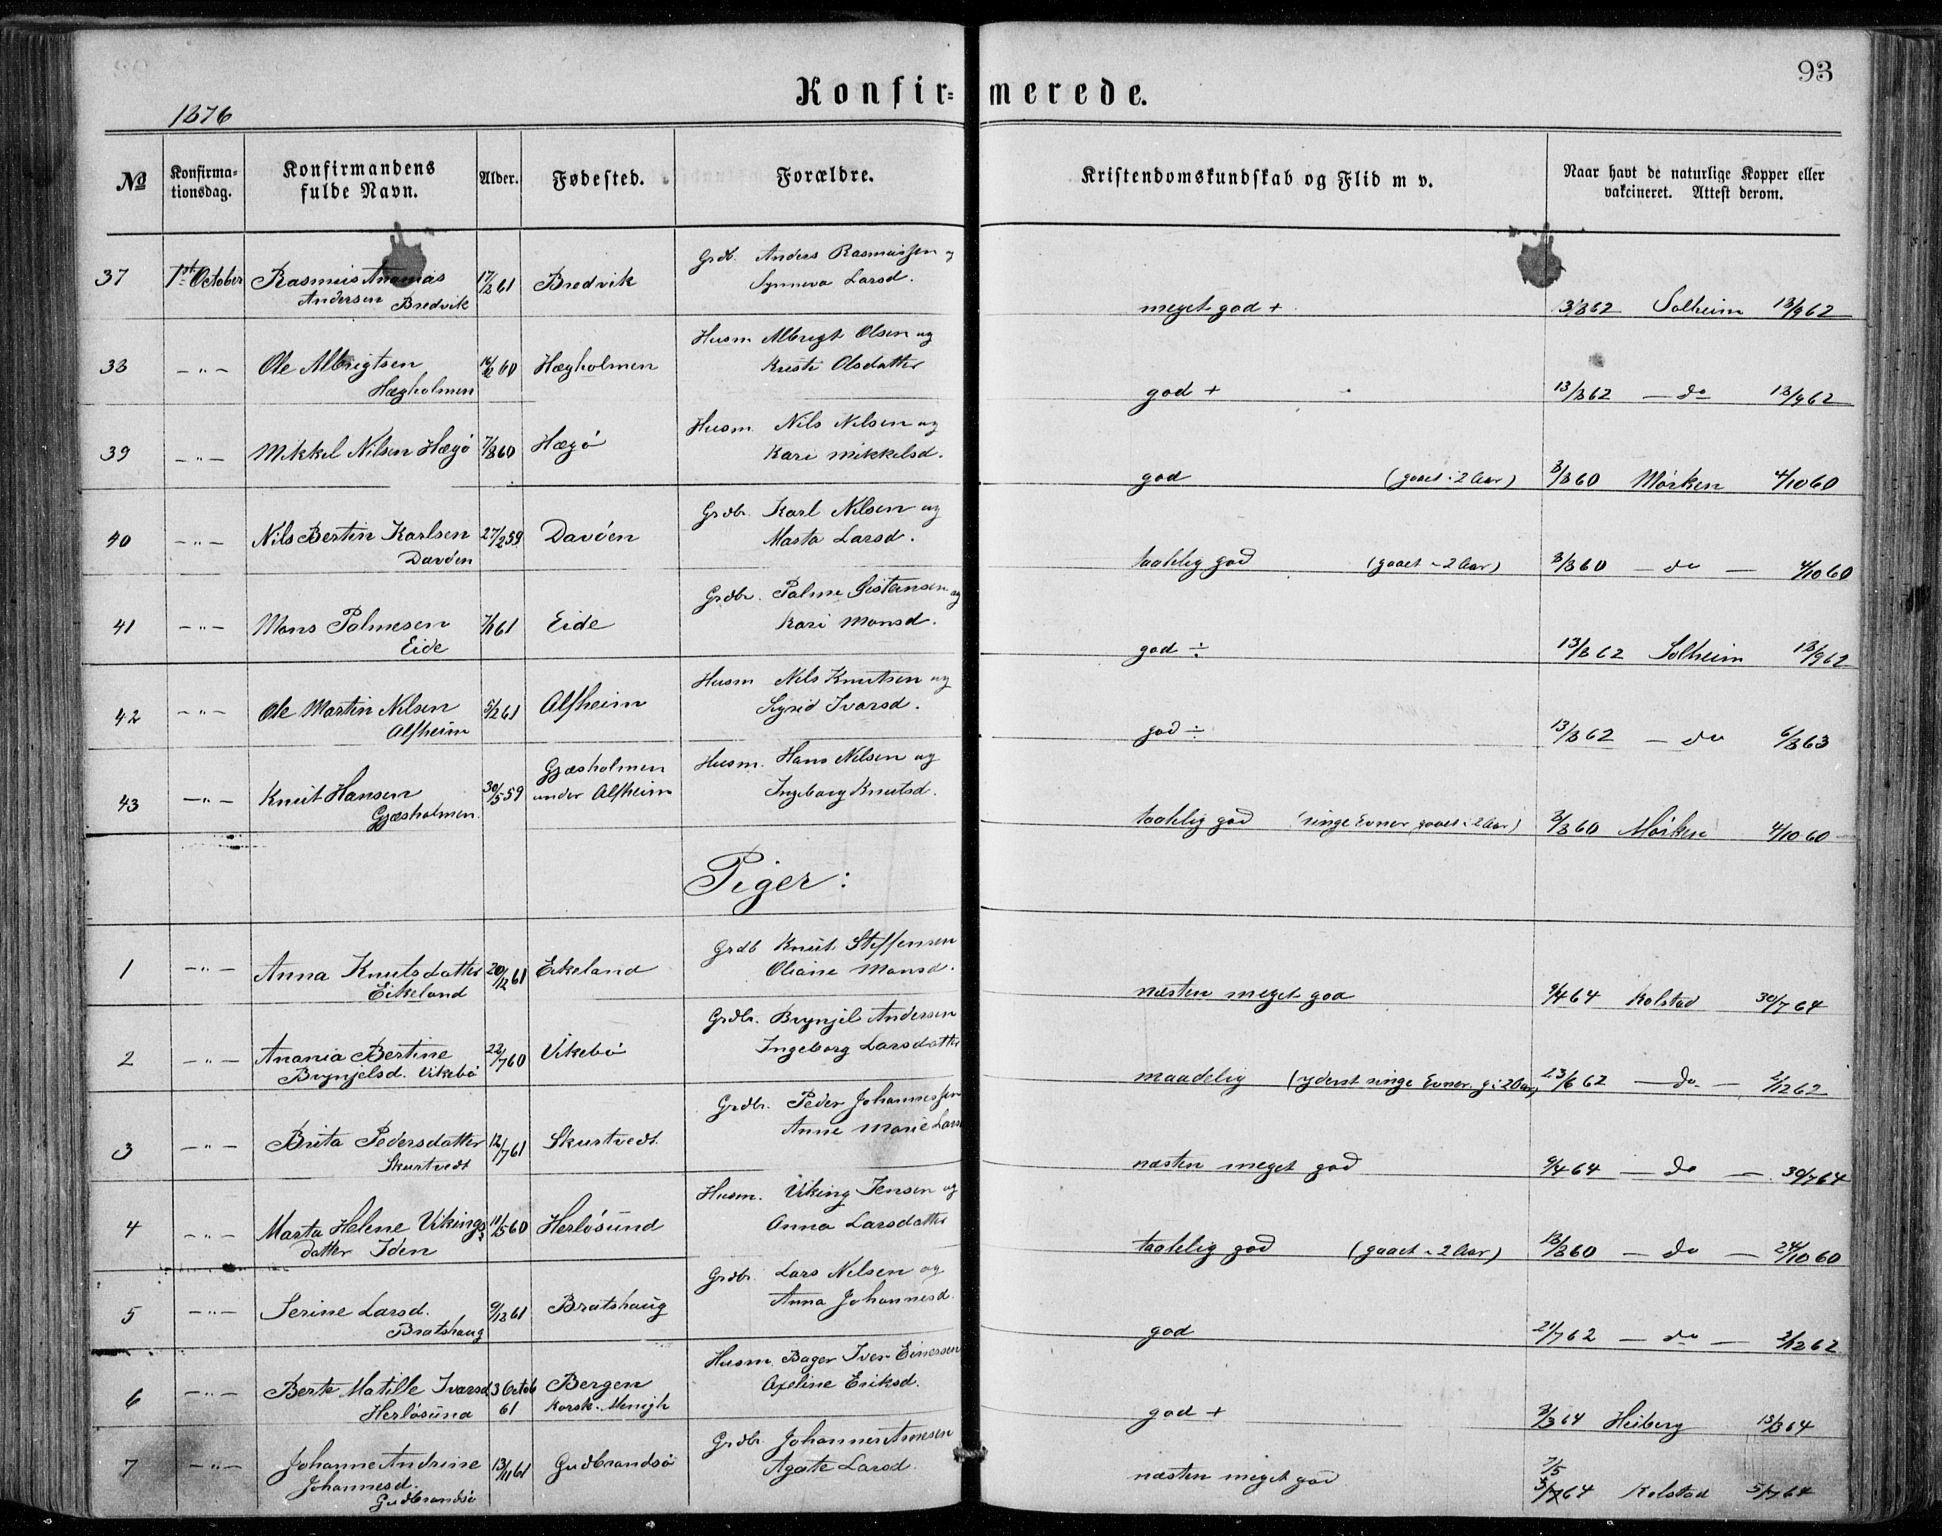 93
1876
Konfir=merede.
No
Konfirma=tionsdag.
Konfirmandens fulde Navn.
Alder.
Fødested.
Forældre.
Kristendomskundskab og Flid m v.
Naar havt de naturlige Kopper eller vakcineret. Attest derom.
37 1st October Rasmus Ananias 61 Bredvik Grdb. Anders Rasmussen og
Andersen Bredvik Synneva Larsd.
meget god + Solheim
38 — " — Ole Albrigtsen 60 Hægholmen Husm. Albregt Olsen og
Hægholmen Kristi Olsdatter
god + 13/8 62 — do 13/9 62
39 — " — Mikkel Nilsen Hægø 7/8 60 Hægø Husm. Nils Nilsen og
Kari Mikkelsd.
god (gaaet i 2 Aar) 3/8 60 Mörken 4/10 60
40 — " — Nils Bertin Karlsen 27/2 59 Davöen Grdbr. Karl Nilsen og
Davöen Marta Larsd.
taalelig god (gaaet i 2 Aar) 3/8 60 — do — 4/10 60
41 — " — Mons Palmesen 61 Eide Grdbr. Palme Gistensen og
Eide Kari Monsd.
god ÷ 13/8 62 Solheim 13/9 62
42 — " — Ole Martin Nilsen 5/2 61 Alfheim Husm Nils Knutsen og
Alfheim Sigrid Ivarsd.
god ÷ 13/8 62 — do 6/8 63
43 — " — Knut Hansen 30/5 59 Gjæsholmen under Alfheim Husm. Hans Nilsen og
Gjæsholmen. Ingeborg Knutsd.
taalelig god (ringe Evner, gaaet i 2 Aar) 3/8 60 Mörken 4/10 60
Piger:
1 — " — Anna Knutsdatter 20/12 61 Eikeland Grdb Knut Steffensen
Eikeland Oliane Monsd.
næsten meget god 9/4 64 Kolstad 30/7 64
2 — " — Anania Bertine 22/7 60 Vikebø Grdbr. Brynjel Andersen
Brynjelsd. Vikebø Ingeborg Larsdatter
maadelig (yderst ringe Evner. g. i 2 Aar) 23/6 62 — do — 2/12 62
3 — " — Brita Pedersdatter 12/7 61 Skurtvedt Grdbr. Peder Johannessen
Skurtvedt Anne Marie Lars
næsten meget god 9/4 64 — do — 30/7 64
4 — " — Marta Helene Vikings 11/5 60 Herløsund Husm. Viking Jensen og
datter Iden Anna Larsdatter
taalelig god (gaaet i 2 Aar) 13/8 60 — do — 24/10 60
5 — " — Serine Larsd. 9/12 61 Bratshaug Grdbr. Lars Nilsen og
Bratshaug Anna Johannesd.
god 21/7 62 — do — 2/12 62
6 — " — Berte Matille Ivarsd 3 Octob 61 Bergen Korsk. Menigh Husm. Bager Iver Einersen
Herløsund Axeline Eriksd.
god + 64 Heiberg 64
7 — " — Johanne Andrine 13/11 61 Gudbrandsø Grdbr. Johannes Arnesen
Johannesd. Agate Larsd.
Gudbrandsø
næsten meget god 7/5 64 Kolstad 5/7 64